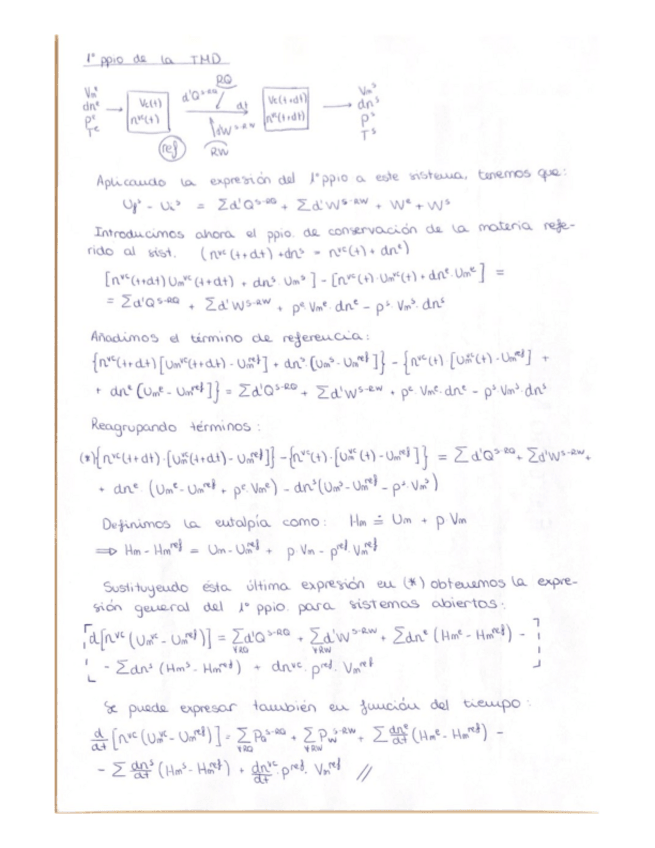 1º ppio de la TMD
Vmᵉ dnᵉ pᵉ Tᵉ → Vc(t) nᵛᶜ(t) d'Qˢ⁻ᴿQ RQ dt d'Wˢ⁻ᴿW RW ref Vc(t+dt) nᵛᶜ(t+dt) → Vmˢ dnˢ pˢ Tˢ
Aplicando la expresión del 1º ppio a este sistema, tenemos que:
U_fˢ - U_iˢ = Σd'Qˢ⁻ᴿQ + Σd'Wˢ⁻ᴿW + Wᵉ + Wˢ
Introducimos ahora el ppio. de conservación de la materia refe-
rido al sist. (nᵛᶜ(t+dt) + dnˢ = nᵛᶜ(t) + dnᵉ)
[nᵛᶜ(t+dt) Umᵛᶜ(t+dt) + dnˢ Umˢ] - [nᵛᶜ(t)·Umᵛᶜ(t) + dnᵉ·Umᵉ] =
= Σd'Qˢ⁻ᴿQ + Σd'Wˢ⁻ᴿW + pᵉ Vmᵉ·dnᵉ - pˢ Vmˢ·dnˢ
Añadimos el término de referencia:
{nᵛᶜ(t+dt)[Umᵛᶜ(t+dt) - Umʳᵉᶠ] + dnˢ·[Umˢ - Umʳᵉᶠ]} - {nᵛᶜ(t)·[Umᵛᶜ(t) - Umʳᵉᶠ] +
+ dnᵉ[Umᵉ - Umʳᵉᶠ]} = Σd'Qˢ⁻ᴿQ + Σd'Wˢ⁻ᴿW + pᵉ·Vmᵉ·dnᵉ - pˢ Vmˢ·dnˢ
Reagrupando términos:
(*){nᵛᶜ(t+dt)·[Umᵛᶜ(t+dt) - Umʳᵉᶠ]} - {nᵛᶜ(t)·[Umᵛᶜ(t) - Umʳᵉᶠ]} = Σd'Qˢ⁻ᴿQ + Σd'Wˢ⁻ᴿW +
+ dnᵉ·(Umᵉ - Umʳᵉᶠ + pᵉ·Vmᵉ) - dnˢ(Umˢ - Umʳᵉᶠ - pˢ·Vmˢ)
Definimos la entalpía como: Hm ≐ Um + p Vm
⟹ Hm - Hmʳᵉᶠ = Um - Umʳᵉᶠ + p Vm - pʳᵉᶠ·Vmʳᵉᶠ
Sustituyendo ésta última expresión en (*) obtenemos la expre-
sión general del 1º ppio. para sistemas abiertos:
d[nᵛᶜ(Umᵛᶜ - Umʳᵉᶠ)] = Σ_∀RQ d'Qˢ⁻ᴿQ + Σ_∀RW d'Wˢ⁻ᴿW + Σdnᵉ(Hmᵉ - Hmʳᵉᶠ) -
- Σdnˢ(Hmˢ - Hmʳᵉᶠ) + dnᵛᶜ·pʳᵉᶠ·Vmʳᵉᶠ
Se puede expresar también en función del tiempo:
d/dt [nᵛᶜ(Umᵛᶜ - Umʳᵉᶠ)] = Σ_∀RQ P_Qˢ⁻ᴿQ + Σ_∀RW P_Wˢ⁻ᴿW + Σ dnᵉ/dt (Hmᵉ - Hmʳᵉᶠ) -
- Σ dnˢ/dt (Hmˢ - Hmʳᵉᶠ) + dnᵛᶜ/dt·pʳᵉᶠ·Vmʳᵉᶠ //